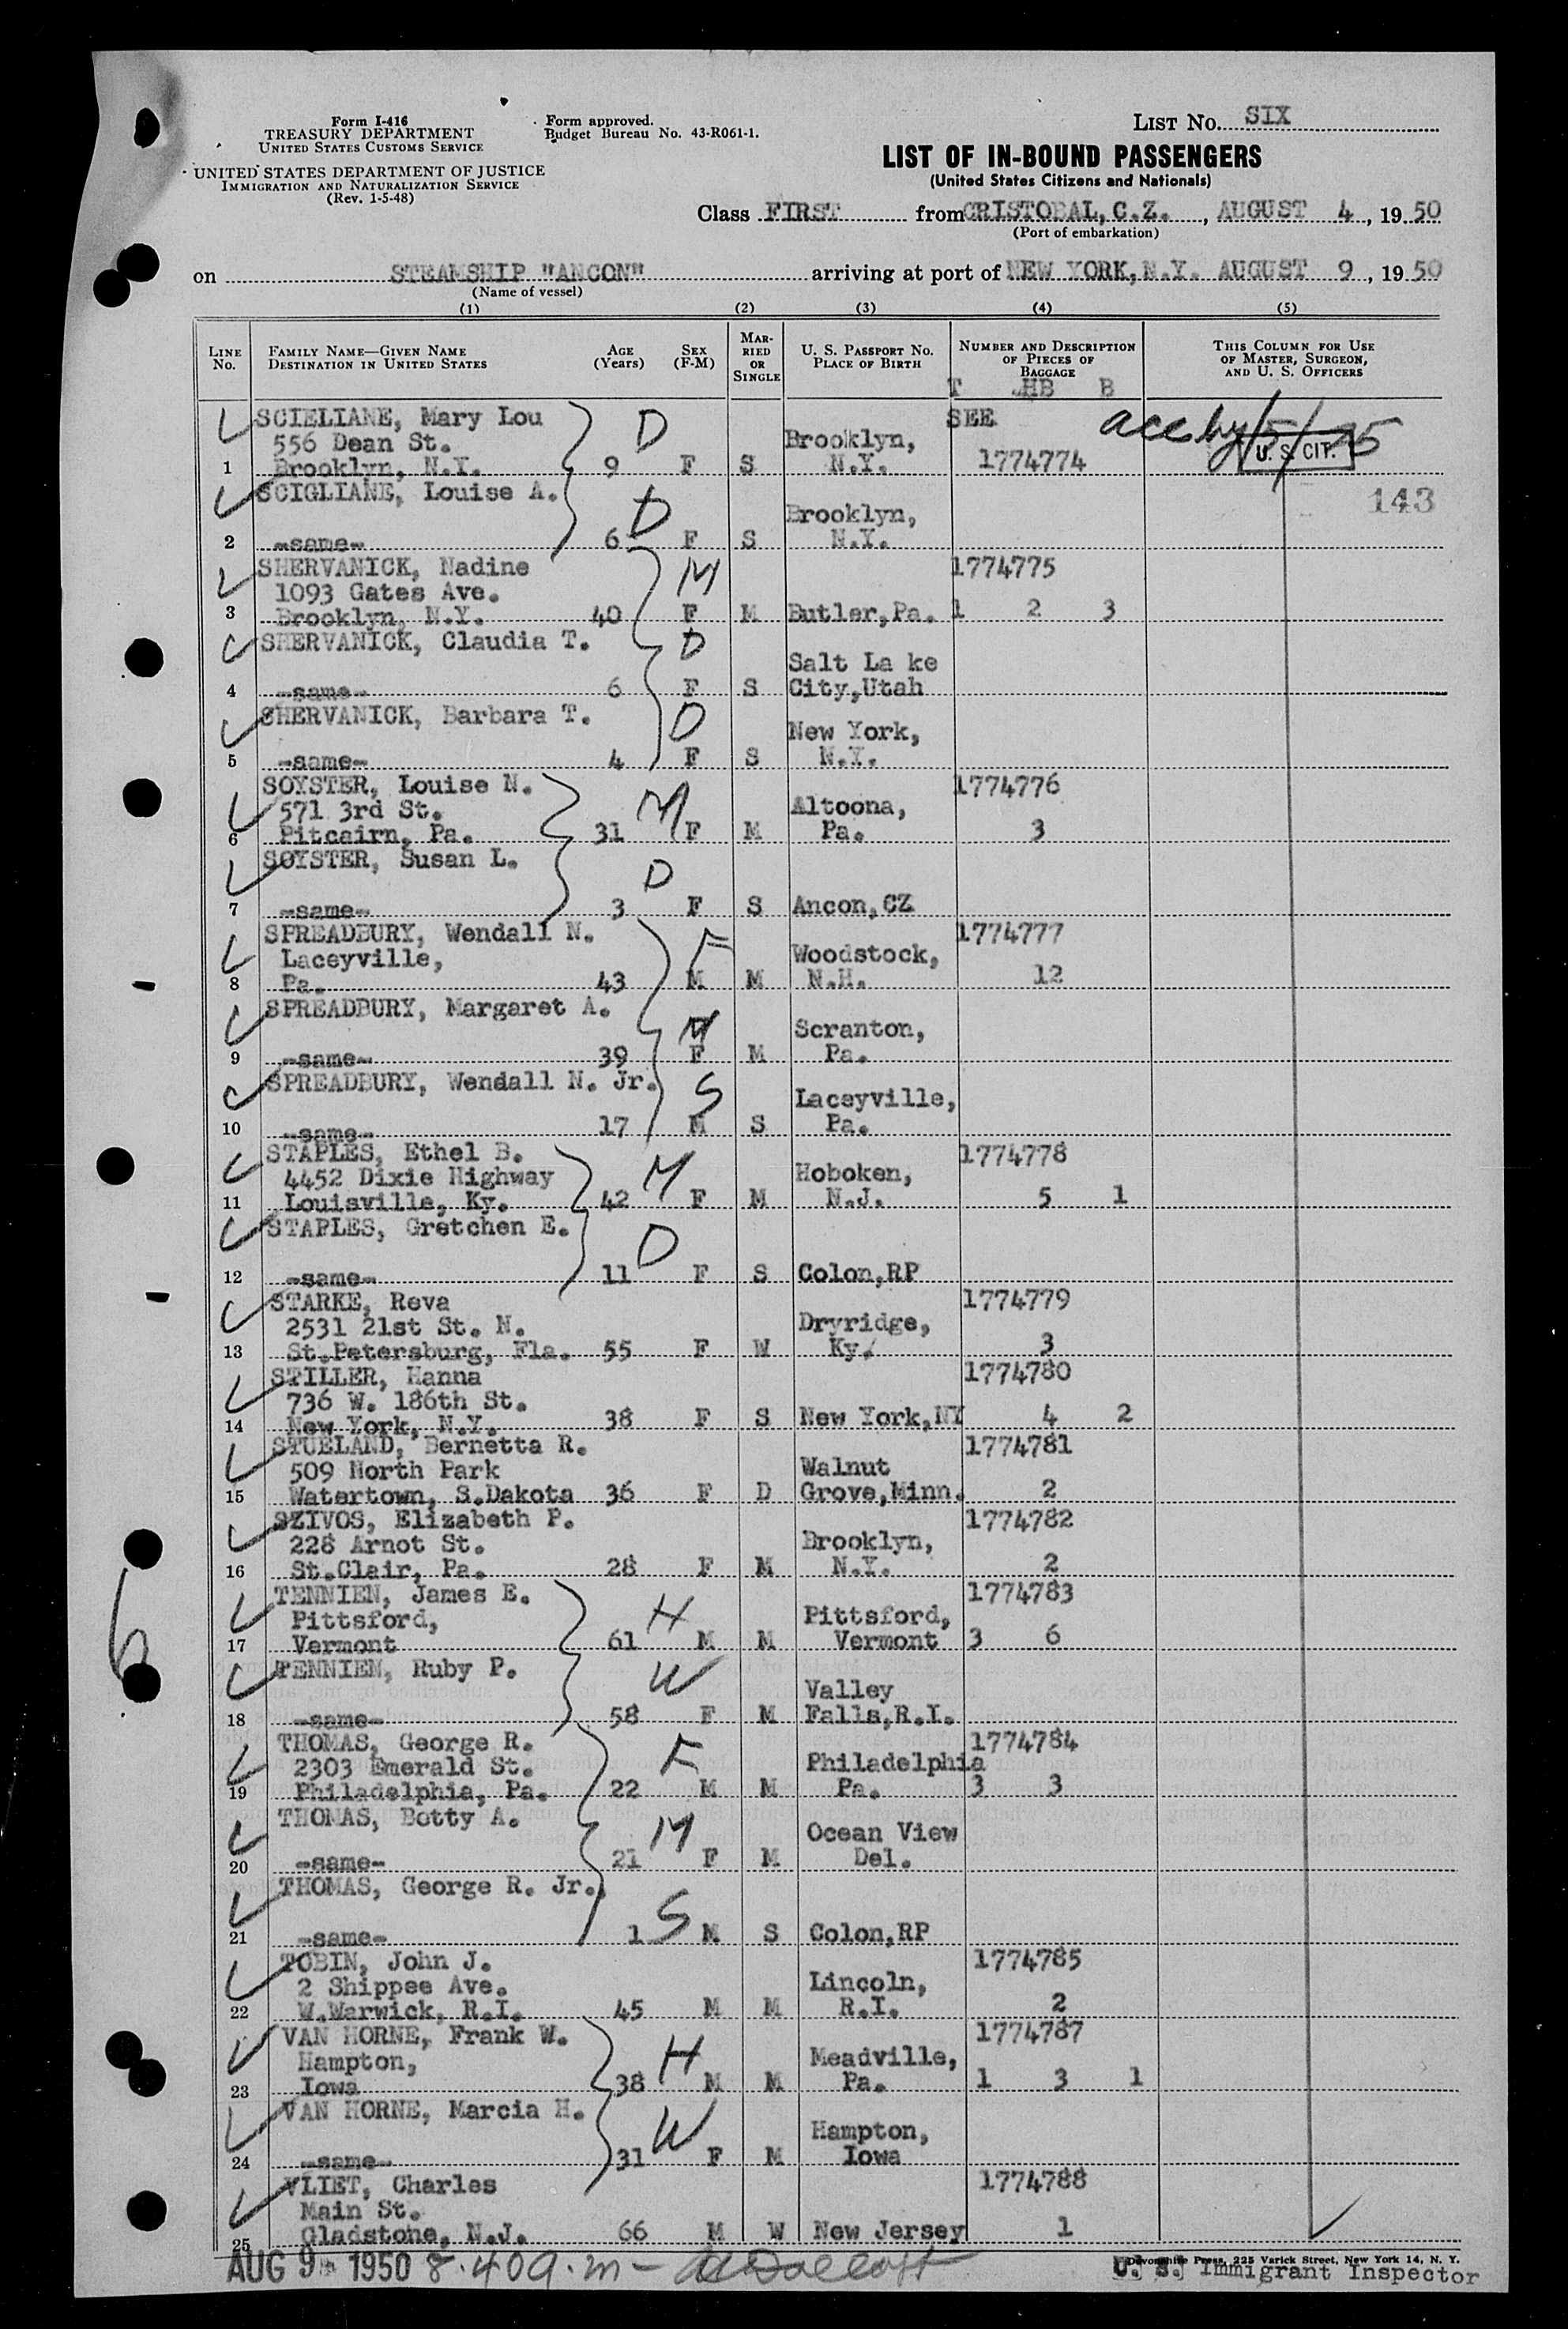 Form I-416
TREASURY DEPARTMENT
UNITED STATES CUSTOMS SERVICE
UNITED STATES DEPARTMENT OF JUSTICE
IMMIGRATION AND NATURALIZATION SERVICE
(Rev. 1-5-48)
Form approved.
Budget Bureau No. 43-R061-1.
LIST No. SIX
LIST OF IN-BOUND PASSENGERS
(United States Citizens and Nationals)
Class FIRST from CRISTOBAL, C.Z., AUGUST 4, 19 50
(Port of embarkation)
on STEAMSHIP "ANCON" arriving at port of NEW YORK, N.Y. AUGUST 9, 19 50
(Name of vessel)
(1) (2) (3) (4) (5)
LINE No. FAMILY NAME—GIVEN NAME DESTINATION IN UNITED STATES AGE (Years) SEX (F-M) MARRIED OR SINGLE U. S. PASSPORT No. PLACE OF BIRTH NUMBER AND DESCRIPTION OF PIECES OF BAGGAGE THIS COLUMN FOR USE OF MASTER, SURGEON, AND U. S. OFFICERS
T HB B
SCIELIANE, Mary Lou D SEE
556 Dean St. Brooklyn, U. S. CIT.
1 Brooklyn, N.Y. 9 F S N.Y. 1774774
SCIGLIANE, Louise A. D Brooklyn, 143
2 -same- 6 F S N.Y.
SHERVANICK, Nadine M 1774775
1093 Gates Ave.
3 Brooklyn, N.Y. 40 F M Butler,Pa. 1 2 3
SHERVANICK, Claudia T. D
Salt La ke
4 -same- 6 F S City,Utah
SHERVANICK, Barbara T. D New York,
5 -same- 4 F S N.Y.
SOYSTER, Louise N. M 1774776
571 3rd St. Altoona,
6 Pitcairn, Pa. 31 F M Pa. 3
SOYSTER, Susan L. D
7 -same- 3 F S Ancon,CZ
SPREADBURY, Wendall N. F 1774777
Laceyville, Woodstock,
8 Pa. 43 M M N.H. 12
SPREADBURY, Margaret A. M Scranton,
9 -same- 39 F M Pa.
SPREADBURY, Wendall N. Jr. S Laceyville,
10 -same- 17 M S Pa.
STAPLES, Ethel B. M 1774778
4452 Dixie Highway Hoboken,
11 Louisville, Ky. 42 F M N.J. 5 1
STAPLES, Gretchen E. D
12 -same- 11 F S Colon,RP
STARKE, Reva 1774779
2531 21st St. N. Dryridge,
13 St.Petersburg, Fla. 55 F W Ky. 3
STILLER, Hanna 1774780
736 W. 186th St.
14 New York, N.Y. 38 F S New York,NY 4 2
STUELAND, Bernetta R. 1774781
509 North Park Walnut
15 Watertown, S.Dakota 36 F D Grove,Minn. 2
SZIVOS, Elizabeth P. 1774782
228 Arnot St. Brooklyn,
16 St.Clair, Pa. 28 F M N.Y. 2
TENNIEN, James E. H 1774783
Pittsford, Pittsford,
17 Vermont 61 M M Vermont 3 6
TENNIEN, Ruby P. W Valley
18 -same- 58 F M Falls,R.I.
THOMAS, George R. F 1774784
2303 Emerald St. Philadelphia
19 Philadelphia, Pa. 22 M M Pa. 3 3
THOMAS, Betty A. M Ocean View
20 -same- 21 F M Del.
THOMAS, George R. Jr. S
21 -same- 1 M S Colon,RP
TOBIN, John J. 1774785
2 Shippee Ave. Lincoln,
22 W.Warwick, R.I. 45 M M R.I. 2
VAN HORNE, Frank W. H 1774787
Hampton, Meadville,
23 Iowa 38 M M Pa. 1 3 1
VAN HORNE, Marcia H. W Hampton,
24 -same- 31 F M Iowa
VLIET, Charles 1774788
Main St.
25 Gladstone, N.J. 66 M W New Jersey 1
6
AUG 9 1950 8.40 a.m -
Devonshire Press, 225 Varick Street, New York 14, N. Y.
U. S. Immigrant Inspector